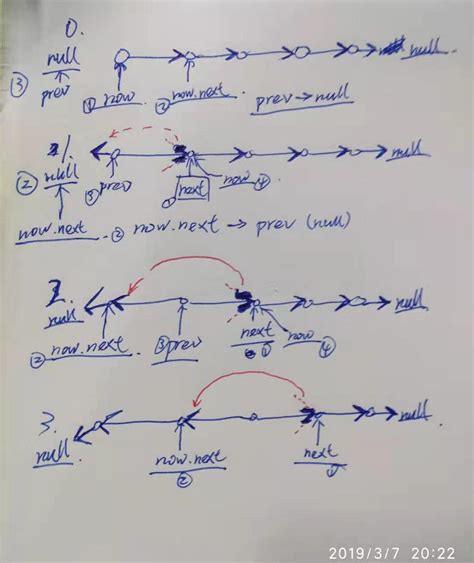 0.
null null.
③ prev ① now. ② now.next prev → null
1.
② null ③ prev next now ④ null
now.next ② now.next → prev (null)
2.
null null
② now.next ③ prev next ① now ④
3.
null null.
now.next next
② ①
2019/3/7 20:22